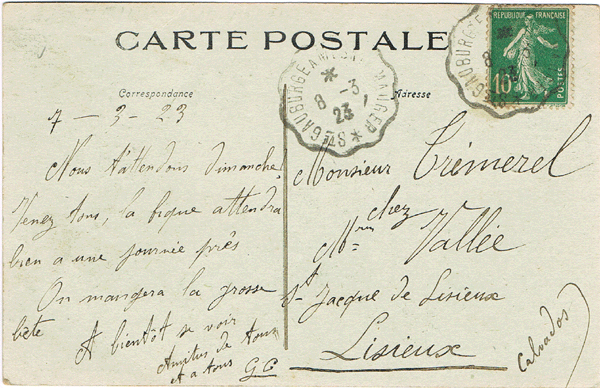 CARTE POSTALE
Correspondance
Adresse
7 - 3 - 23
Nous t'attendons dimanche
Venez tous, la bique attendra
bien a une journée près
On mangera la grosse
bête
A bientôt se voir
Amitiés de tous
A a tous G C
8 - 3
23
RÉPUBLIQUE FRANÇAISE
10
POSTES
Monsieur Trémerel
chez
Mr Vallée
St Jacque de Lisieux
Lisieux
Calvados